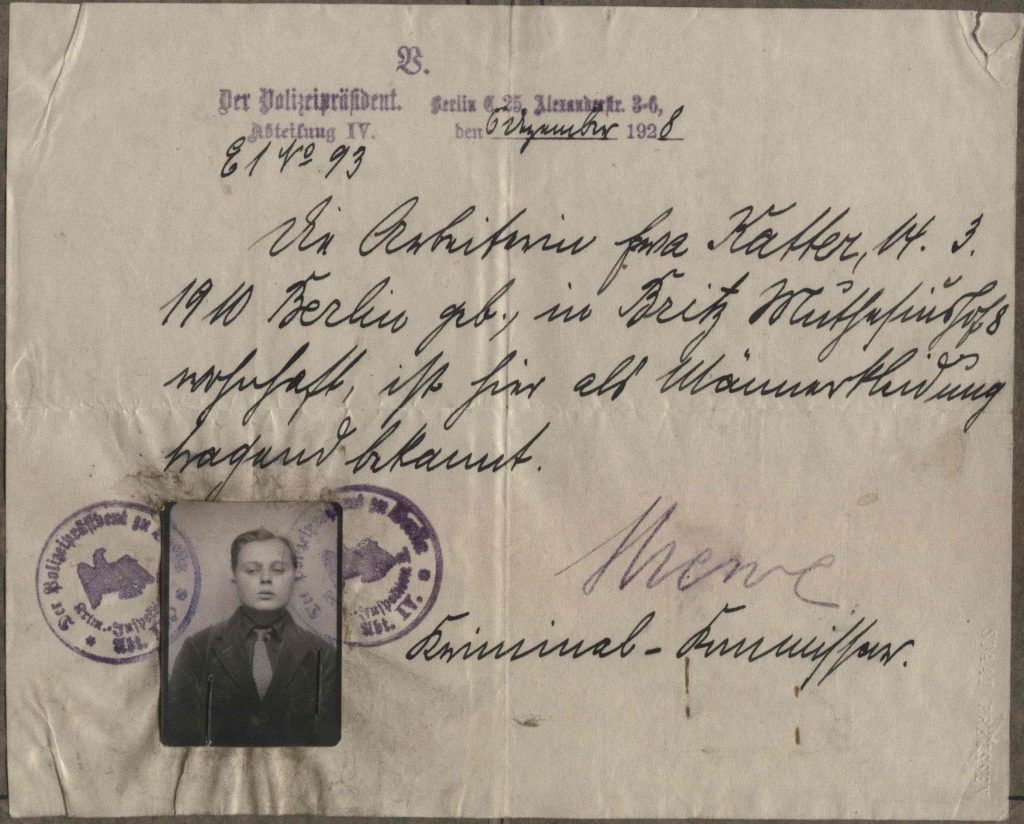 V.
Der Polizeipräsident.
Abteilung IV.
E 1 No 93
Berlin C. 25, Alexanderstr. 3-6,
den 6 Dezember 1928
Die Arbeiterin Eva Katter, 14. 3.
1910 Berlin geb., in Britz Muthesiushof 8
wohnhaft, ist hier als Männerkleidung
tragend bekannt.
Der Polizeipräsident zu
Krim.-Inspektion
Abt. IV
zu Berlin
Inspektion
Abt. IV.
Kriminal-Kommissar.